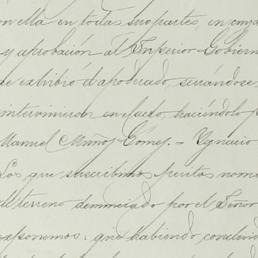 con ella en todas sus partes, en cum
y aprobación al Superior Gobiern
de exhibió el apoderado, cerrándose
intervinieron en efecto, haciéndolo p
Manuel Muñoz Gómez. — Ygnacio
Los que suscribimos peritos nom
el terreno denunciado por el Señor
exponemos: que habiendo concluido